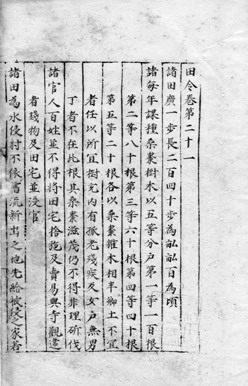 田令卷第二十一
諸田廣一步長二百四十步為畝畝百為頃
諸每年課種桑棗樹木以五等分戶第一等一百根
第二等八十根第三等六十根第四等四十根
第五等二十根各以桑棗雜木相半鄉土不宜
者任以所宜樹充內有孤老殘疾及女戶無男
丁者不在此根其桑棗滋茂仍不得非理斫伐
諸官人百姓並不得將田宅捨施及賣易與寺觀違
者錢物及田宅並沒官
諸田為水侵射不依舊流新出之地先給被侵家若